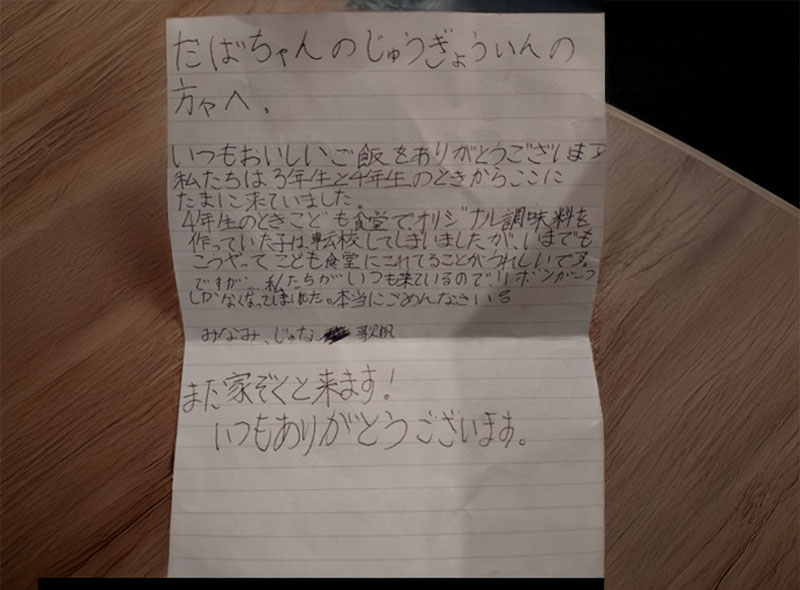 たばちゃんのじゅうぎょういんの
方々へ.
いつもおいしいご飯をありがとうございます
私たちは3年生と4年生のときからここに
たまに来ていました。
4年生のときこども食堂で、オリジナル調味料を
作っていた子は、転校してしまいましたが、いまでも
こうやってこども食堂にこれてることがうれしいです。
ですが…私たちがいつも来ているので、リボンが一つ
しかなくなってしまいました。本当にごめんなさい
みなみ、じゅな 歌帆
また家ぞくと来ます!
いつもありがとうございます。